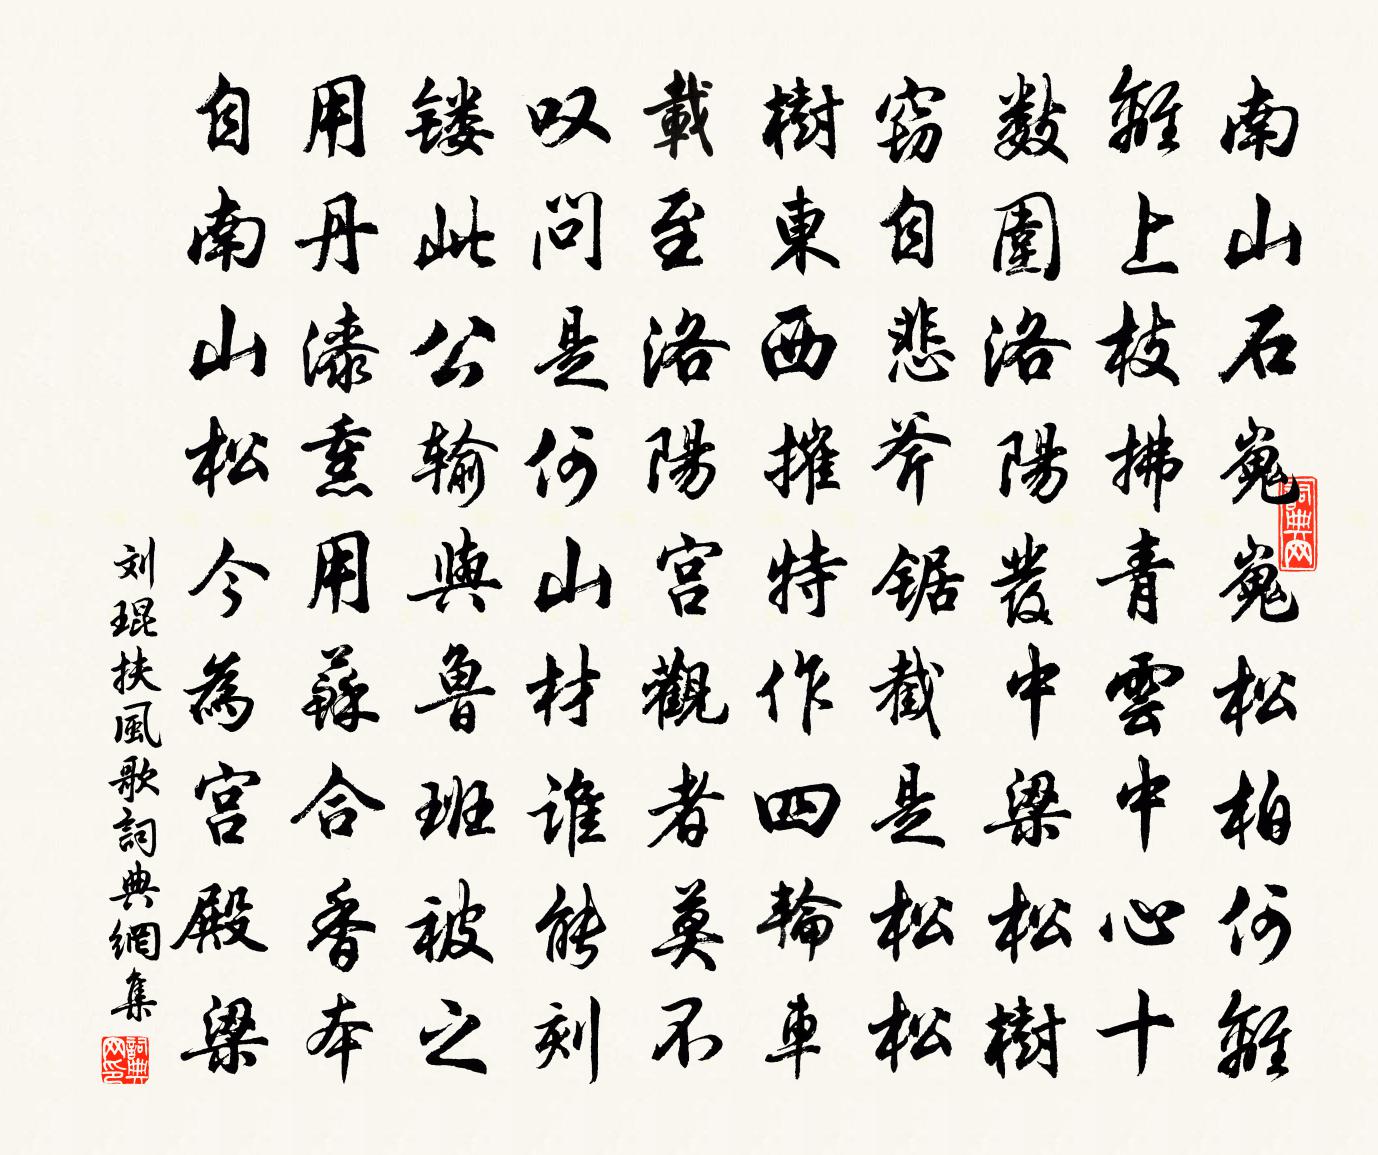 南山石嵬嵬松柏何離
離上枝拂青雲中心十
數圍洛陽發中梁松樹
窃自悲斧锯截是松松
樹東西摧特作四輪車
載至洛陽宫觀者莫不
叹问是何山材谁能刻
镂此公输與魯班被之
用丹漆熏用蘇合香本
自南山松今為宫殿梁
刘琨扶風歌詞典網集
詞典网
詞典网印